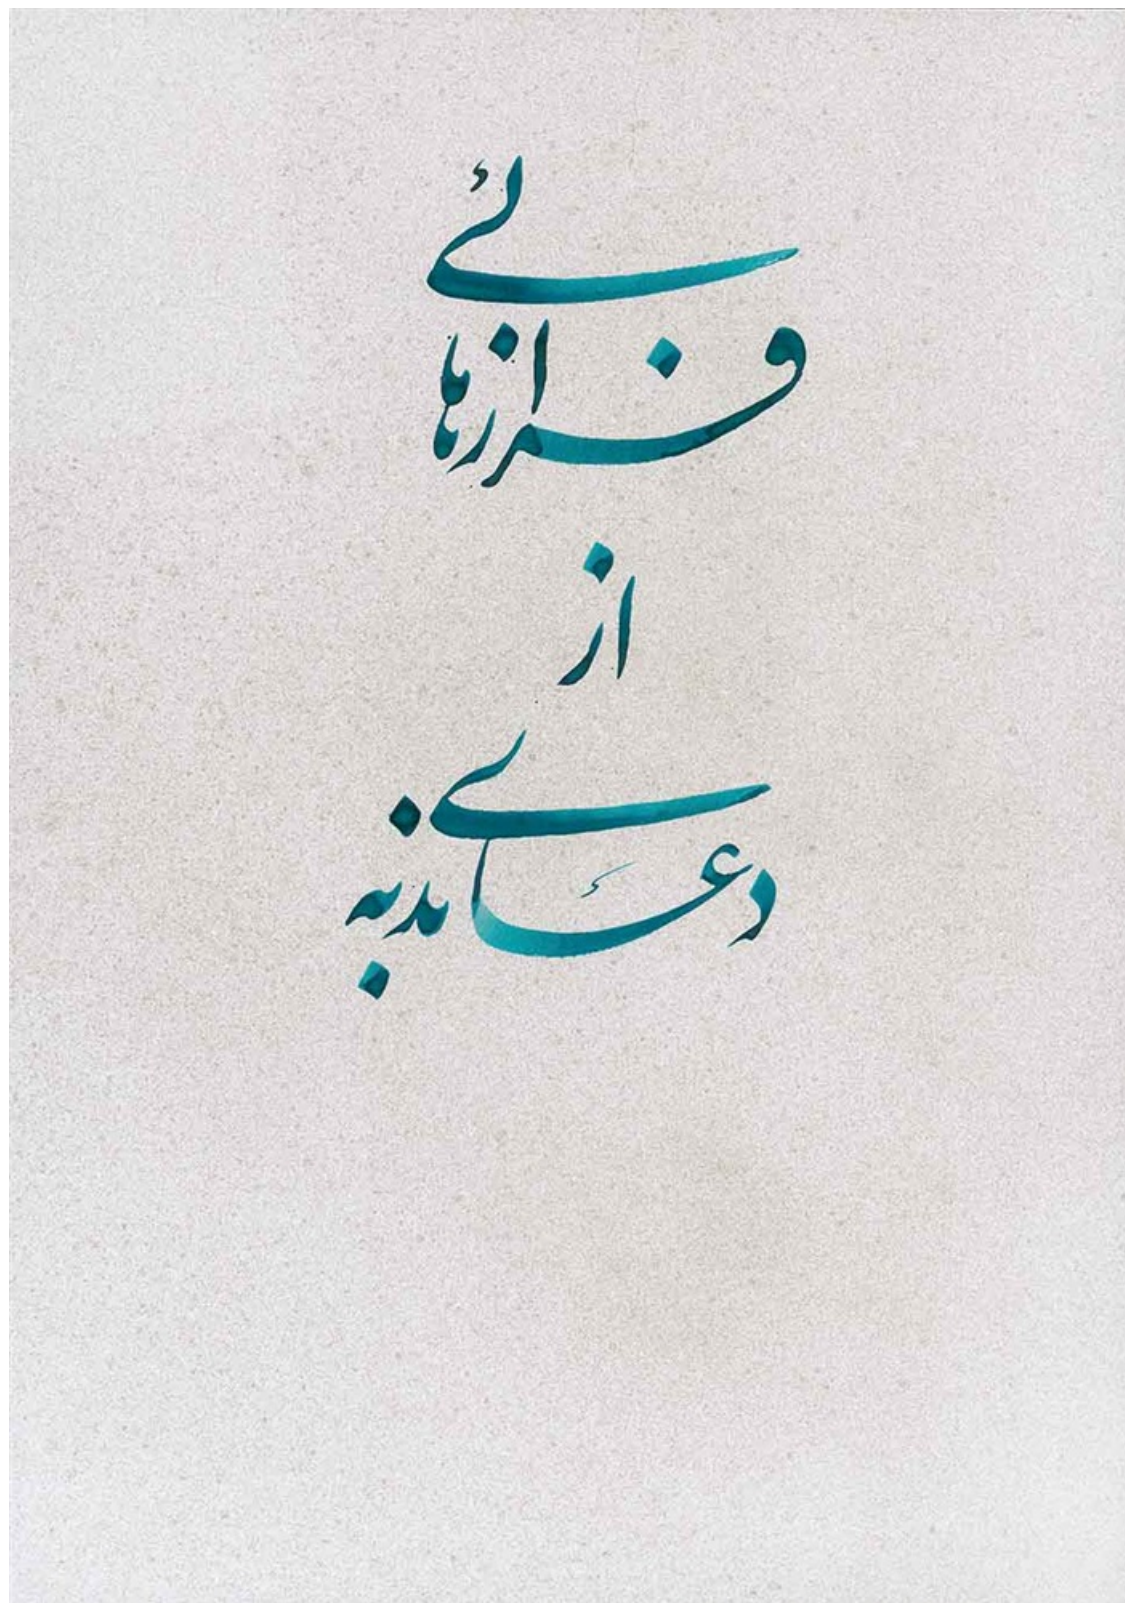 فرازهائی
از
دعای ندبه